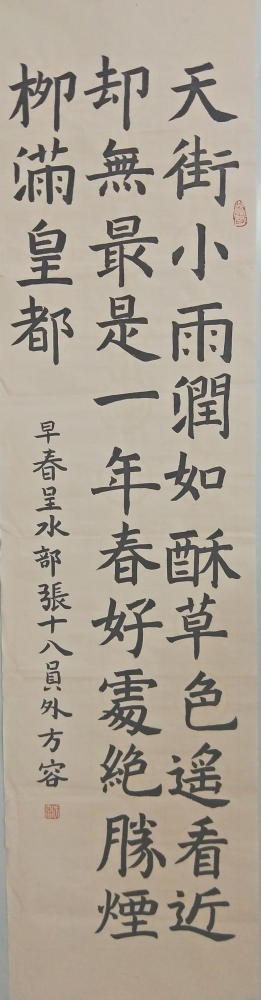 天街小雨潤如酥草色遥看近
却無最是一年春好處絶勝煙
柳滿皇都
早春呈水部張十八員外方容